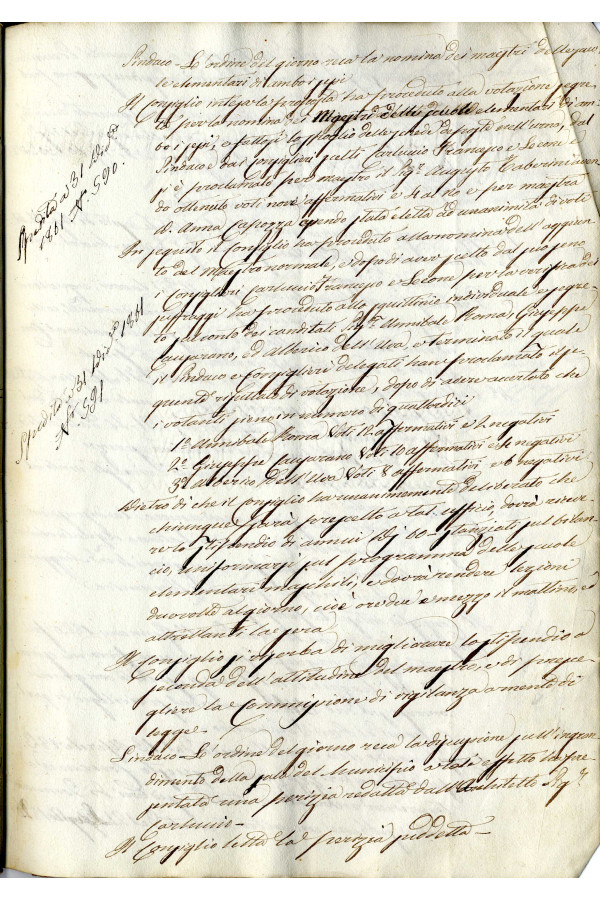 Sindaco - L'ordine del giorno reca la nomina dei maestri delle scuo-
le elementari di ambo i sessi
Il Consiglio intesa la proposta ha proceduto alla votazione segre-
ta per la nomina dei Maestri delle scuole elementari di am-
bo i sessi, e fattosi lo spoglio delle schede deposte nell'urna, dal
Sindaco e dai Consiglieri Carluccio Francesco e Leone
si è proclamato per maestro il Sigr. Augusto Taberini aven
do ottenuto voti nove affermativi e 4 al no e per maestra
D. Anna Capozza essendo stata eletta ad unanimità di voti
In seguito il Consiglio ha proceduto alla nomina dell'aggiun
to del Maestro normale, e dopo di aver scelto dal suo seno
i Consiglieri Carlucci Francesco e Leone per la verifica dei
suffraggi ha proceduto allo squittinio individuale e segre-
to sul conto dei canditati Sigri. Annibale Roma, Giuseppe
Cauparano, ed Alberico Dell'Uva e terminato il quale
il Sindaco e Consiglieri delegati hanno proclamato il se-
quend risultato di votazione, dopo di avere accertato che
i votanti sieno in numero di quattordici
1.º Annibale Roma Voti 12 affermativi e 2 negativi
2.º Giuseppe Cauparano Voti 10 affermativi e 4 negativi
3.º Alberico Dell'Uva Voti 8 affermativi, e 6 negativi
Dietro di che il Consiglio ha unanimamente deliberato che
chiunque sarà prescelto a tal ufficio, dovrà riceve-
re lo stipendio di annui D. 60 - stanziati sul bilan-
cio, uniformarsi sul programma delle scuole
elementari maschili, e dovrà rendere lezioni
due volte al giorno, cioè ore due e mezzo il mattino, e
altrettanti la sera
Il Consiglio si riserba di migliorare lo stipendio a
seconda dell'attitudine del maestro, e di presce-
gliere la Commissione di vigilanza a mente di
legge -
Sindaco - L'ordine del giorno reca la discussione sull'ingran-
dimento della sala del Municipio e a tale effetto ha pre-
sentata una perizia redatta dall'Architetto Sigr.
Carluccio -
Il Consiglio letta la perizia suddetta -
Spedita a 31 Dic. 1861 Nº 590.
Spedita a 31 Dic. 1861
Nº 591